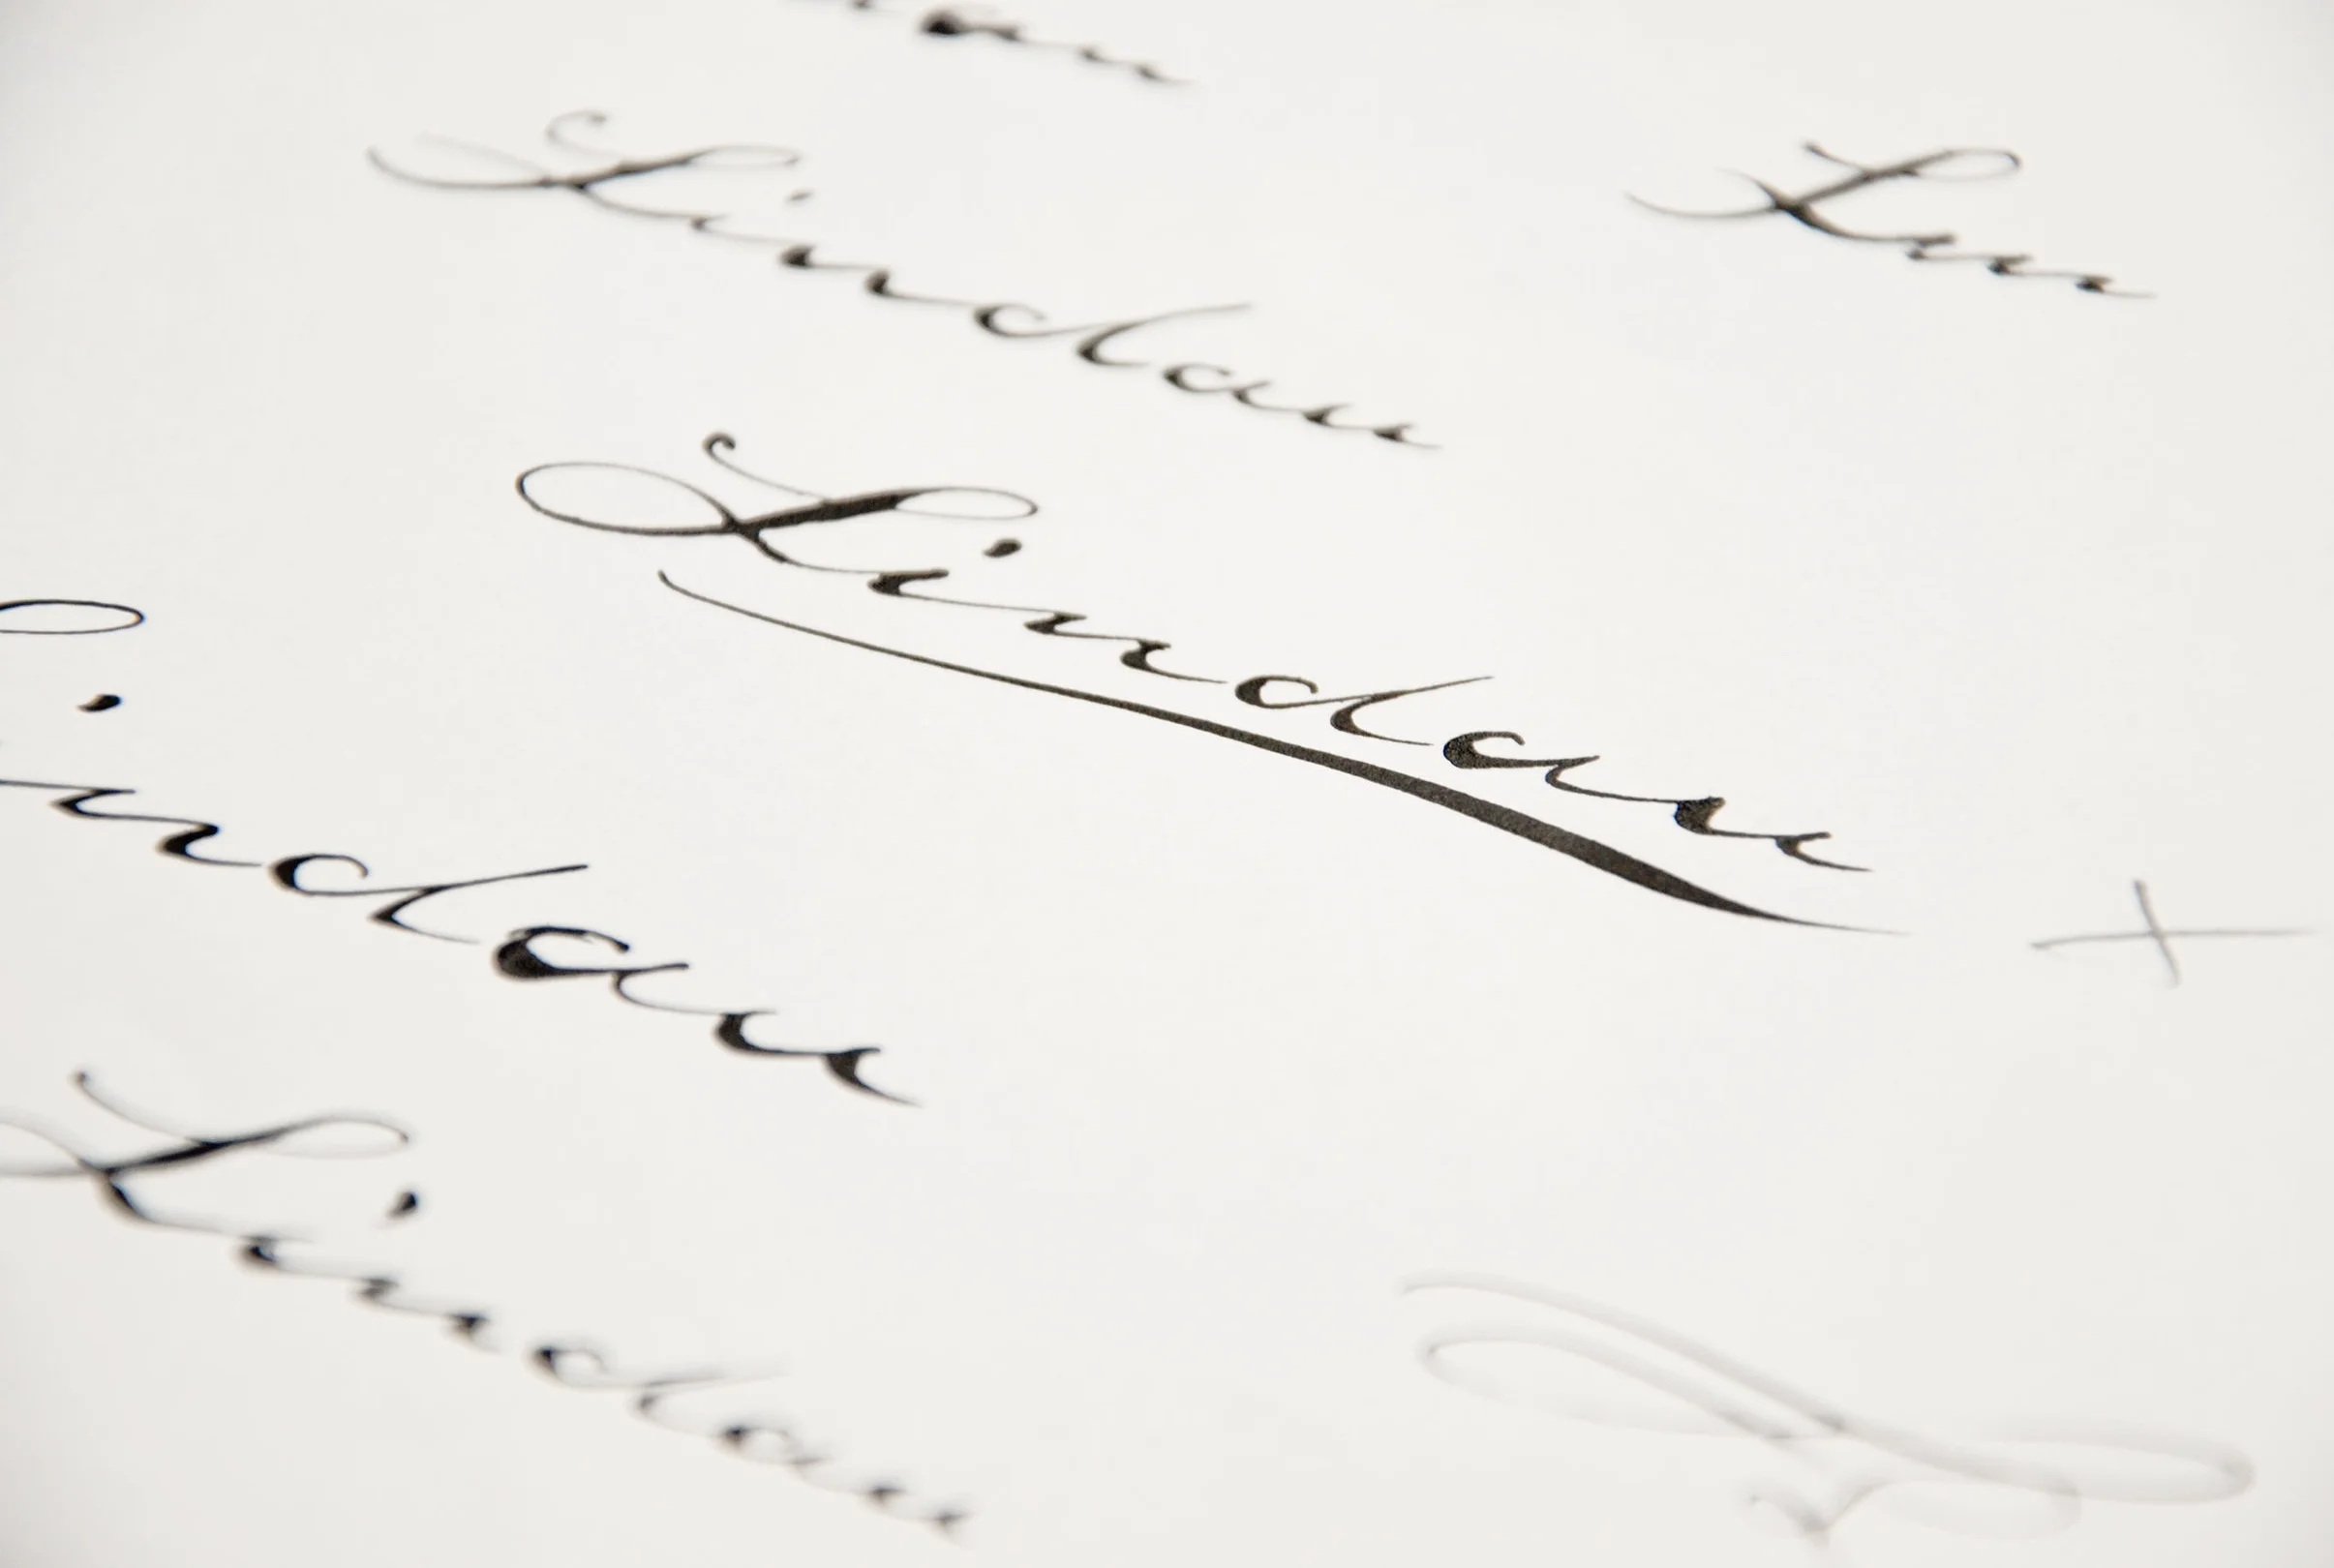 Lindau
Lin
Lindau
indau
Lindau